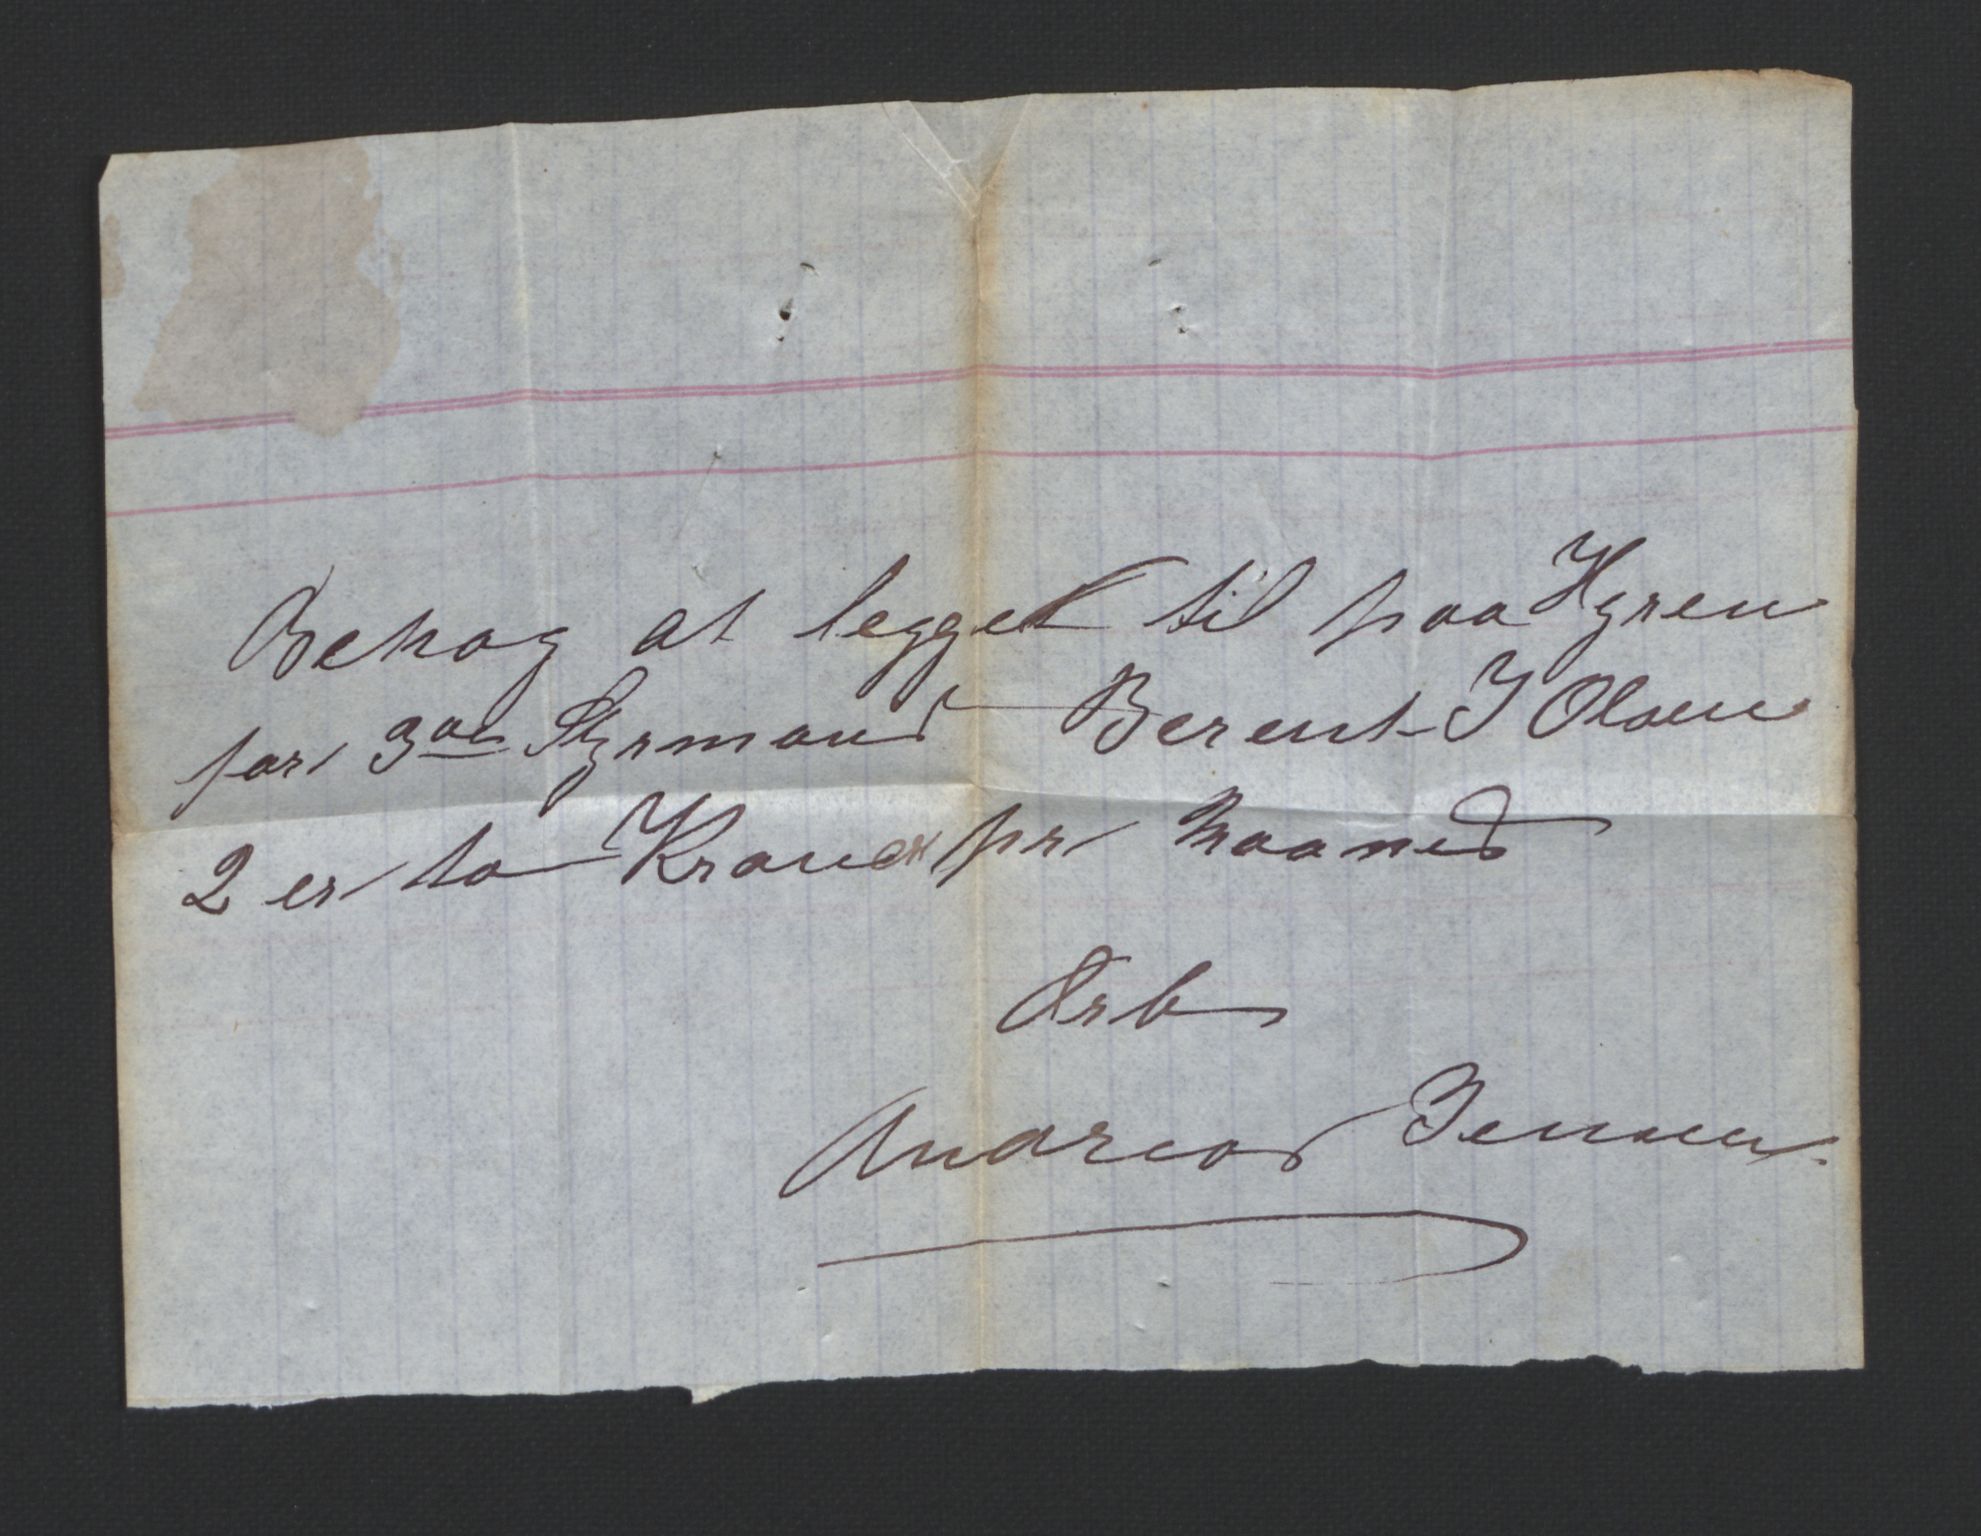 Behag at legget til paa Hyren
for 3die Styrmand Berent I Olsen
2 er to Kroner pr Maaned
Ærb
Andreas Jensen.